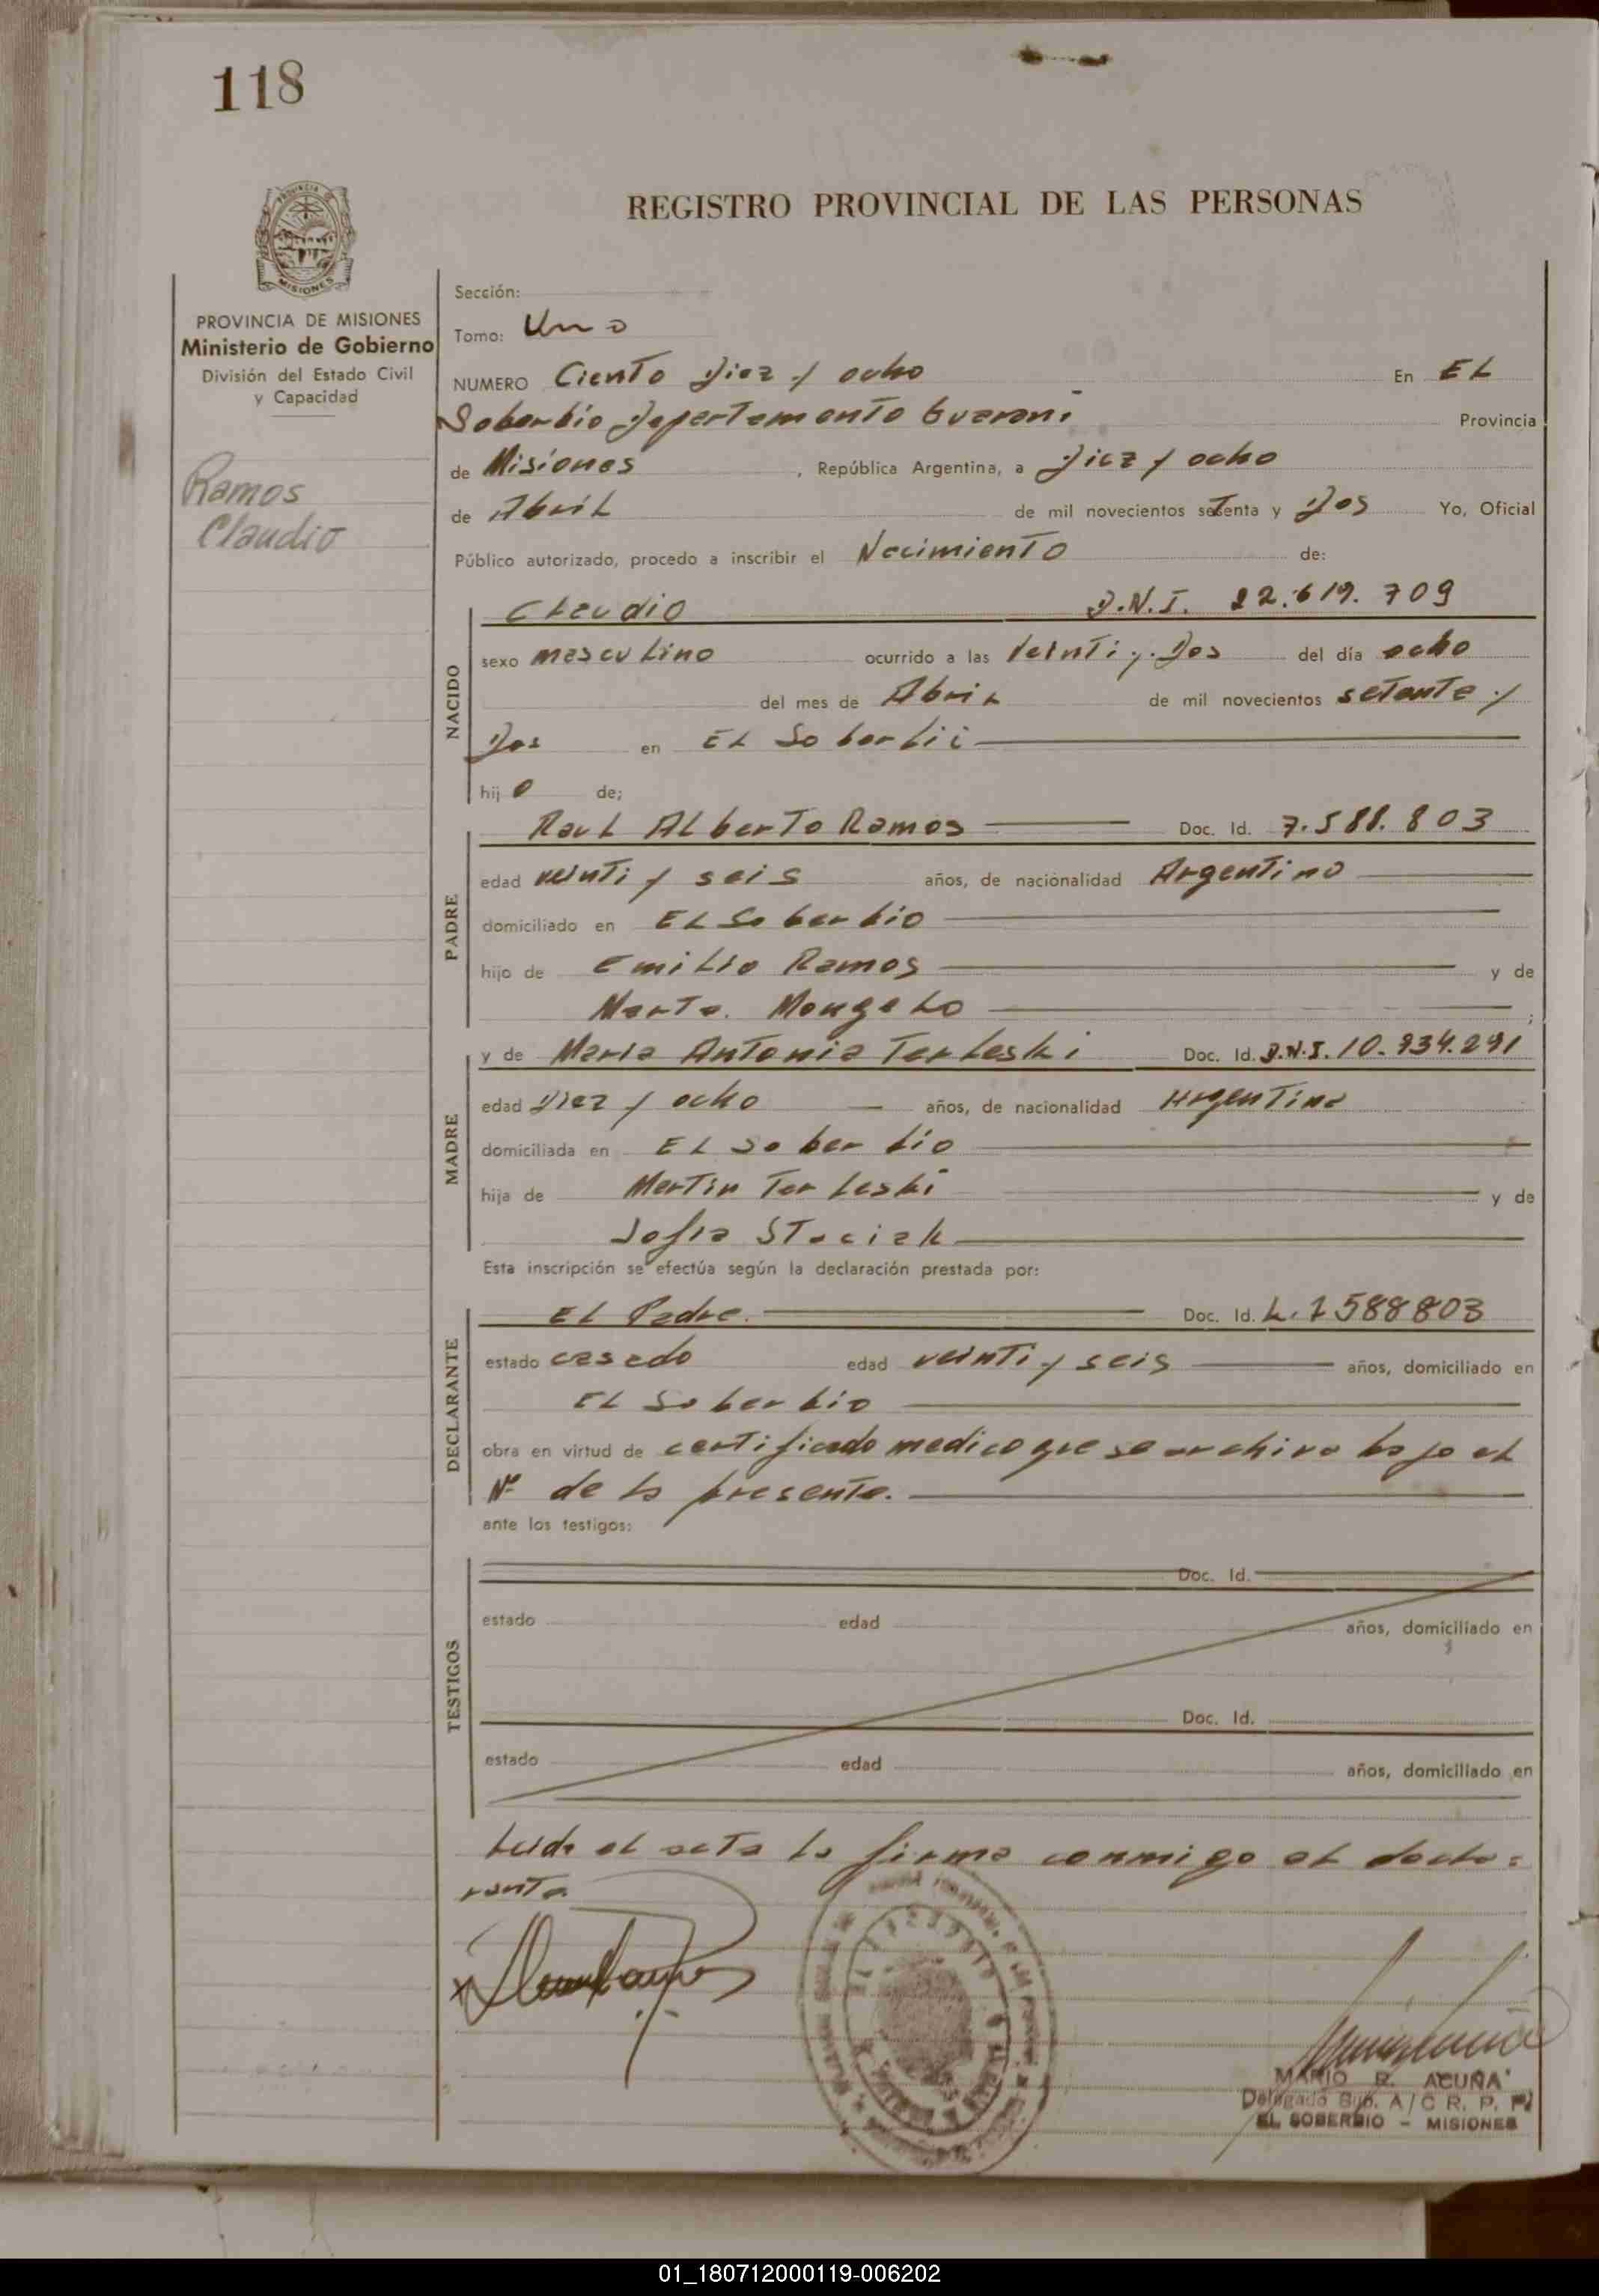 118
REGISTRO PROVINCIAL DE LAS PERSONAS
PROVINCIA MISIONES
PROVINCIA DE MISIONES
Ministerio de Gobierno
División del Estado Civil
y Capacidad
Ramos
Claudio
Sección:
Tomo: Uno
NUMERO Ciento Diez y ocho En EL
Soberbio Departamento Guarani Provincia
de Misiones , República Argentina, a Diez y ocho
de Abril de mil novecientos setenta y Dos Yo, Oficial
Público autorizado, procedo a inscribir el Nacimiento de:
NACIDO
Claudio D.N.I. 22.619.709
sexo masculino ocurrido a las Veinti y Dos del día ocho
del mes de Abril de mil novecientos setenta y
Dos en EL Soberbii
hijo de;
PADRE
Raul Alberto Ramos Doc. Id. 7.588.803
edad veinti y seis años, de nacionalidad Argentino
domiciliado en EL Soberbio
hijo de Emilio Ramos y de
Marta Mongelo ;
MADRE
y de Maria Antonia Terleski Doc. Id. D.N.I. 10.934.291
edad Diez y ocho años, de nacionalidad Argentina
domiciliada en EL Soberbio
hija de Martin Terleski y de
Sofia Staciak
Esta inscripción se efectúa según la declaración prestada por:
DECLARANTE
EL Padre. Doc. Id. L. 7588803
estado casado edad veinti y seis años, domiciliado en
EL Soberbio
obra en virtud de certificado medico que se archiva bajo el
Nº de la presente.
ante los testigos:
TESTIGOS
Doc. Id.
estado edad años, domiciliado en
Doc. Id.
estado edad años, domiciliado en
Leida el acta la firma conmigo el decla=
rante
MARIO R. ACUÑA
Delegado Sup. A/C R. P. P.
EL SOBERBIO - MISIONES
01_180712000119-006202